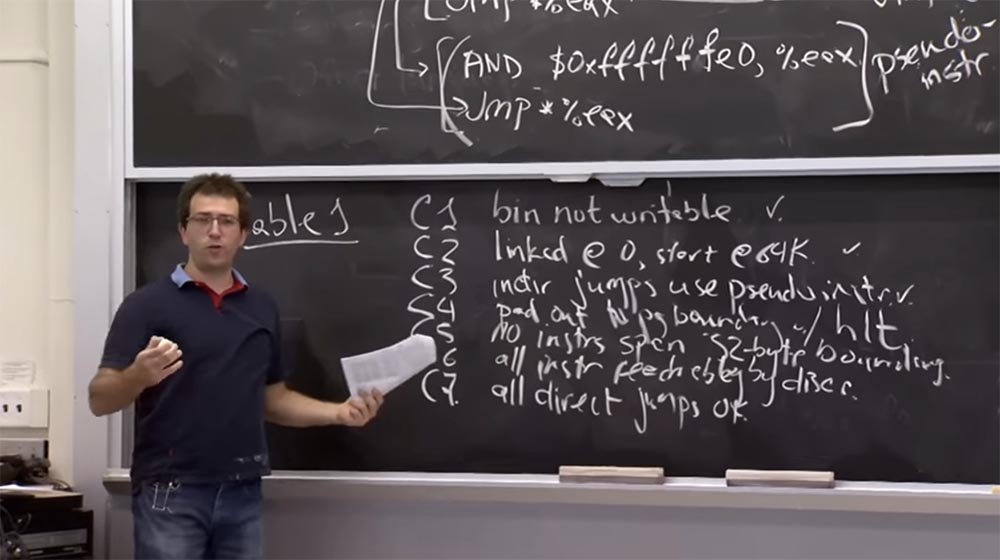 Jmp *%eax
AND $0xffffffe0, %eax
Jmp *%eax
pseudo-
instr
able 1
C1 bin not writable. ✓.
C2 linked @ 0, start @ 64K. ✓
C3 indir jumps use pseudo instr. ✓
C4 pad out to pg boundary w/ hlt.
C5 no instrs span 32-byte boundary.
6 all instr reachable by disas.
C7. all direct jumps OK.